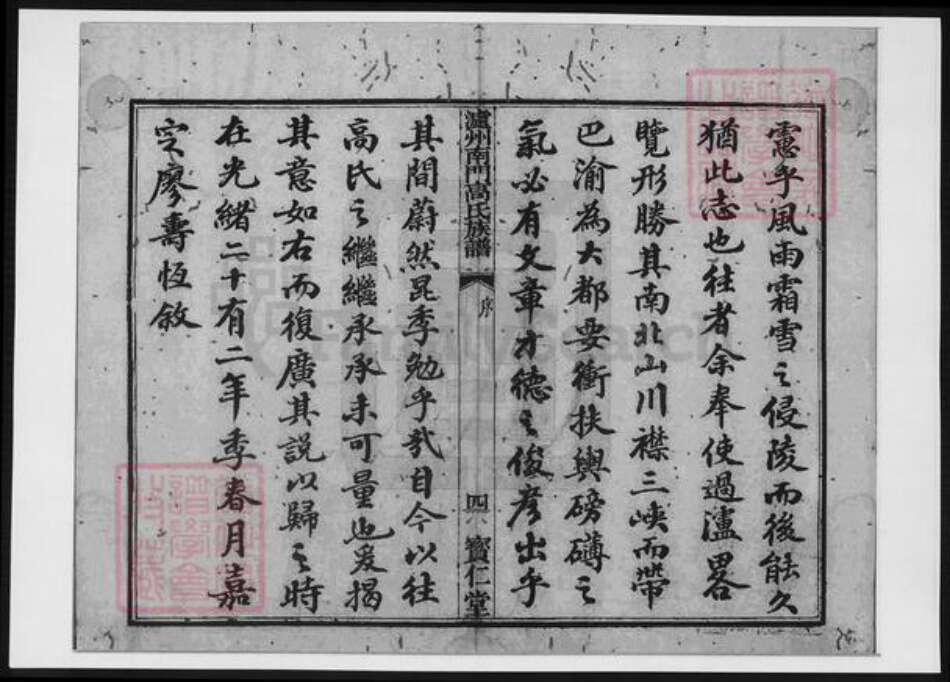 慮乎風雨霜雪之侵陵而後能久
猶此志也往者余奉使過瀘畧
覽形勝其南北山川襟三峽而帶
巴渝為大都要衝扶輿磅礴之
氣必有文章才德之俊彥出乎
瀘州南門高氏族譜
序
四
寶仁堂
其間蔚然昆季勉乎哉自今以往
高氏之繼繼承承未可量也爰揭
其意如右而復廣其說以歸之時
在光緒二十有二年季春月嘉
定廖壽恆敘
FamilySearch